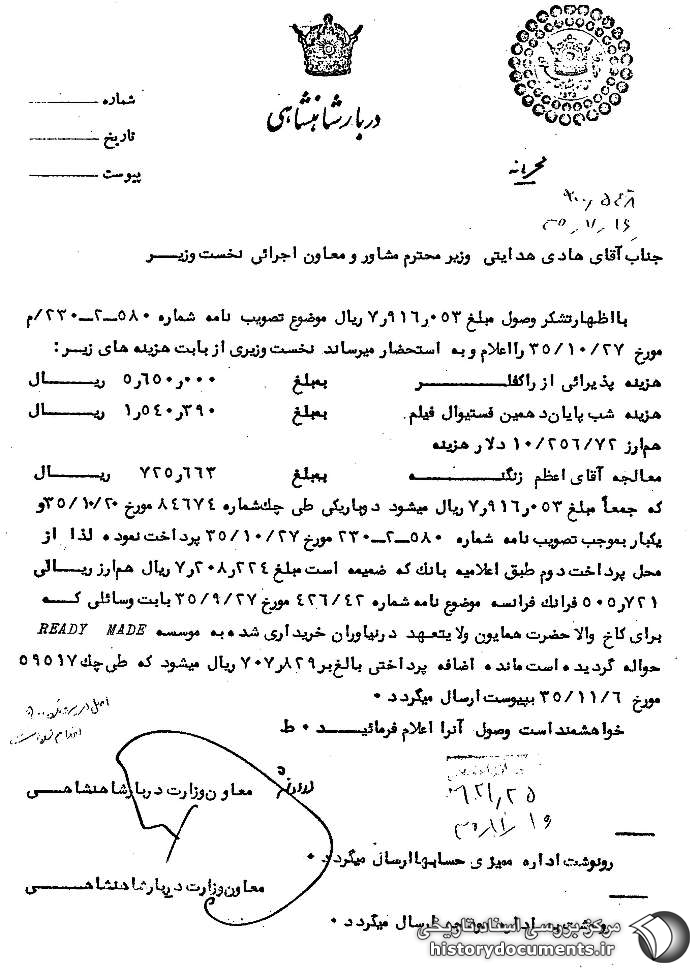 دربار شاهنشاهی
شماره
تاریخ
پیوست
محرمانه
جناب آقای هادی هدایتی وزیر محترم مشاور و معاون اجرائی نخست وزیر
با اظهار تشکر وصول مبلغ ۷٫۹۱۶٫۰۵۳ ریال موضوع تصویب نامه شماره ۵۸۰-۲-۲۳۰/م
مورخ ۳۵/۱۰/۲۷ را اعلام و به استحضار میرساند نخست وزیری از بابت هزینه های زیر:
هزینه پذیرائی از راکفلر بمبلغ ۵٫۶۵۰٫۰۰۰ ریال
هزینه شب پایان دهمین فستیوال فیلم بمبلغ ۱٫۵۴۰٫۳۹۰ ریال
هم ارز ۱۰/۲۵۶/۷۲ دلار هزینه
معالجه آقای اعظم زنگنه بمبلغ ۷۲۵٫۶۶۳ ریال
که جمعاً مبلغ ۷٫۹۱۶٫۰۵۳ ریال میشود دوبار یکی طی چک شماره ۸۴۶۷۴ مورخ ۳۵/۱۰/۲۰ و
یکبار بموجب تصویب نامه شماره ۵۸۰-۲-۲۳۰ مورخ ۳۵/۱۰/۲۷ پرداخت نموده لذا از
محل پرداخت دوم طبق اعلامیه بانک که ضمیمه است مبلغ ۷٫۲۰۸٫۲۲۴ ریال هم ارز ریالی
۵۰۵٫۷۲۱ فرانک فرانسه موضوع نامه شماره ۴۲۶/۴۲ مورخ ۳۵/۹/۲۷ بابت وسائلی که
برای کاخ والا حضرت همایون ولایتعهد در نیاوران خریداری شده به موسسه READY MADE
حواله گردیده است مانده اضافه پرداختی بالغ بر ۷۰۷٫۸۲۹ ریال میشود که طی چک ۵۹۵۱۷
مورخ ۳۵/۱۱/۶ بپیوست ارسال میگردد ۰
خواهشمند است وصول آنرا اعلام فرمائید ۰ ط
معاون وزارت دربار شاهنشاهی
۳۵/۱۱/۱۶
رونوشت اداره ممیزی حسابها ارسال میگردد ۰
معاون وزارت دربار شاهنشاهی
ارسال میگردد ۰
مرکز بررسی اسناد تاریخی
historydocuments.ir